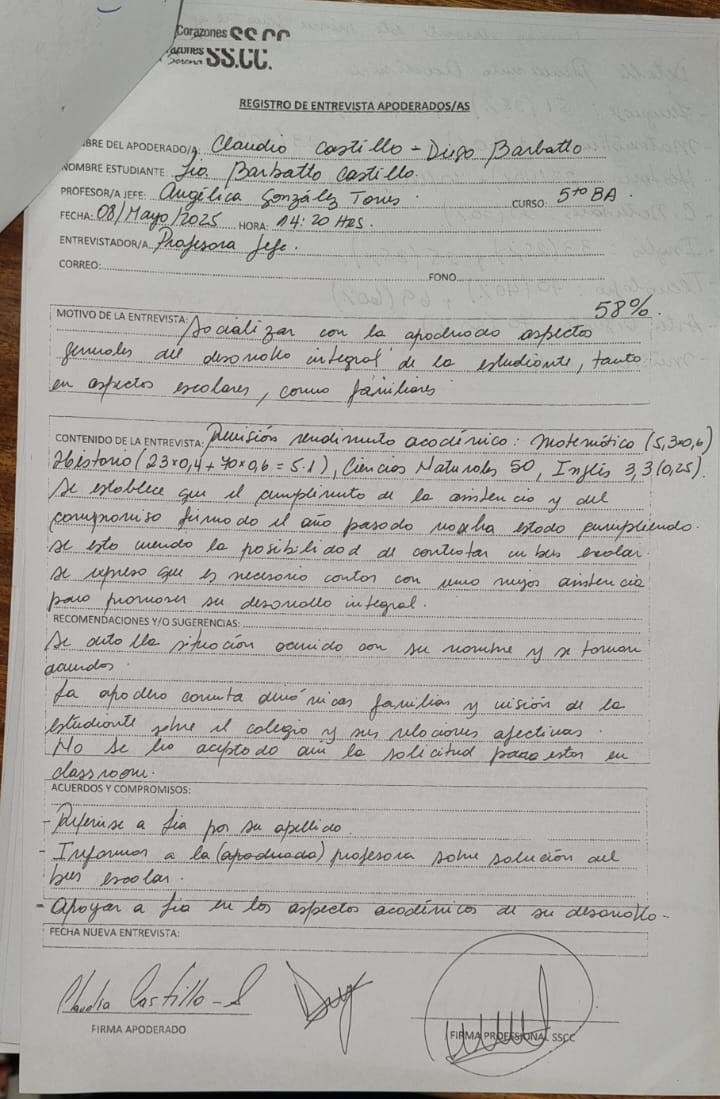 Corazones SS.CC
Corazones
Serena SS.CC.
REGISTRO DE ENTREVISTA APODERADOS/AS
BRE DEL APODERADO/A: Claudia Castillo - Diego Barbatto
NOMBRE ESTUDIANTE: Barbatto Castillo.
PROFESOR/A JEFE: Angélica González Torres. CURSO: 5to BA.
FECHA: 08/Mayo/2025 HORA: 14:20 Hrs.
ENTREVISTADOR/A: Profesora Jefe.
CORREO: FONO
58%.
MOTIVO DE LA ENTREVISTA: Socializar con la apoderada aspectos
generales del desarrollo integral de la estudiante, tanto
en aspectos escolares, como familiares
CONTENIDO DE LA ENTREVISTA: Revisión rendimiento académico: Matemática (5,3x0,6)
Historia (23x0,4 + 70x0,6 = 5.1), Ciencias Naturales 50, Inglés 3,3 (0,25).
Se establece que el cumplimiento de la asistencia y del
compromiso firmado el año pasado no se ha estado cumpliendo.
Se esta viendo la posibilidad de contratar un bus escolar.
Se expresa que es necesario contar con una mejor asistencia
para promover su desarrollo integral.
RECOMENDACIONES Y/O SUGERENCIAS:
Se detalla situación ocurrida con su nombre y se toman
acuerdos.
La apodera comenta dinámicas familiares y visión de la
estudiante sobre el colegio y sus relaciones afectivas.
No se ha aceptado aun la solicitud para estar en
classroom.
ACUERDOS Y COMPROMISOS:
- Referirse a por su apellido.
- Informar a la (apoderada) profesora sobre solución del
bus escolar.
- Apoyar a en los aspectos académicos de su desarrollo.
FECHA NUEVA ENTREVISTA:
Claudia Castillo - S
FIRMA APODERADO
FIRMA PROFESIONAL SSCC